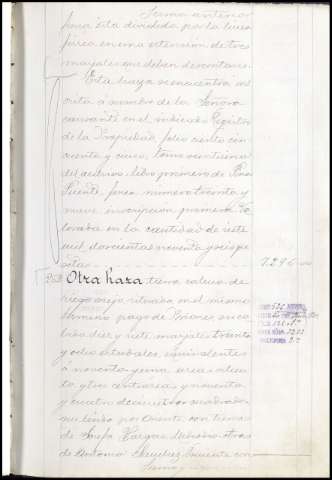 Suma anterior
finca está dividida por la linea
férrea en una extensión de tres
marjales que deben descontarse.
Esta haza se encuentra ins
crita á nombre de la Señora
causante en el indicado Registro
de la Propiedad, folio ciento cin
cuenta y cinco, tomo
del archivo, libro primero de Pinos
Puente, finca número treinta y
nueve, inscripción primera. Va
lorada en la cantidad de siete
mil doscientas noventa y seis pe
setas 7.296
Otra haza tierra calma de
riego anejo, situada en el mismo
término, pago de
bida diez y siete marjales treinta
y ocho estadales, equivalentes
á noventa y una areas, ochen
ta y tres centiareas y noventa
y cuatro decimetros cuadrados
que linda por Oriente, con tierras
de Josefa Vargas; Mediodía, otras
de Antonio Sanchez; Poniente con
Suma y sigue